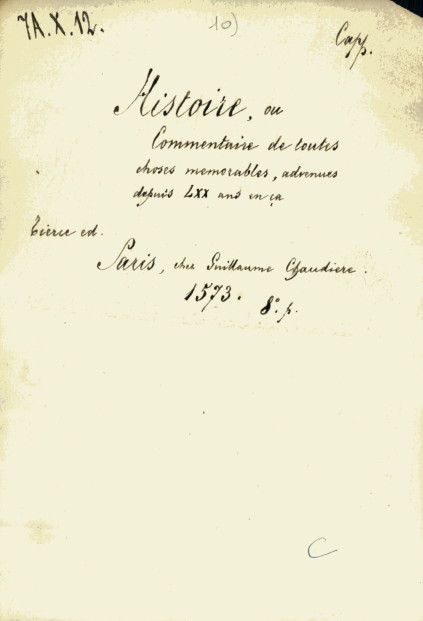 7A.X.12.
10)
Capp.
Histoire, ou
Commentaire de toutes
choses memorables, advenues
depuis LXX ans en ça
tierce ed.
Paris, chez Guillaume Chaudiere.
1573. 8º. p.
C